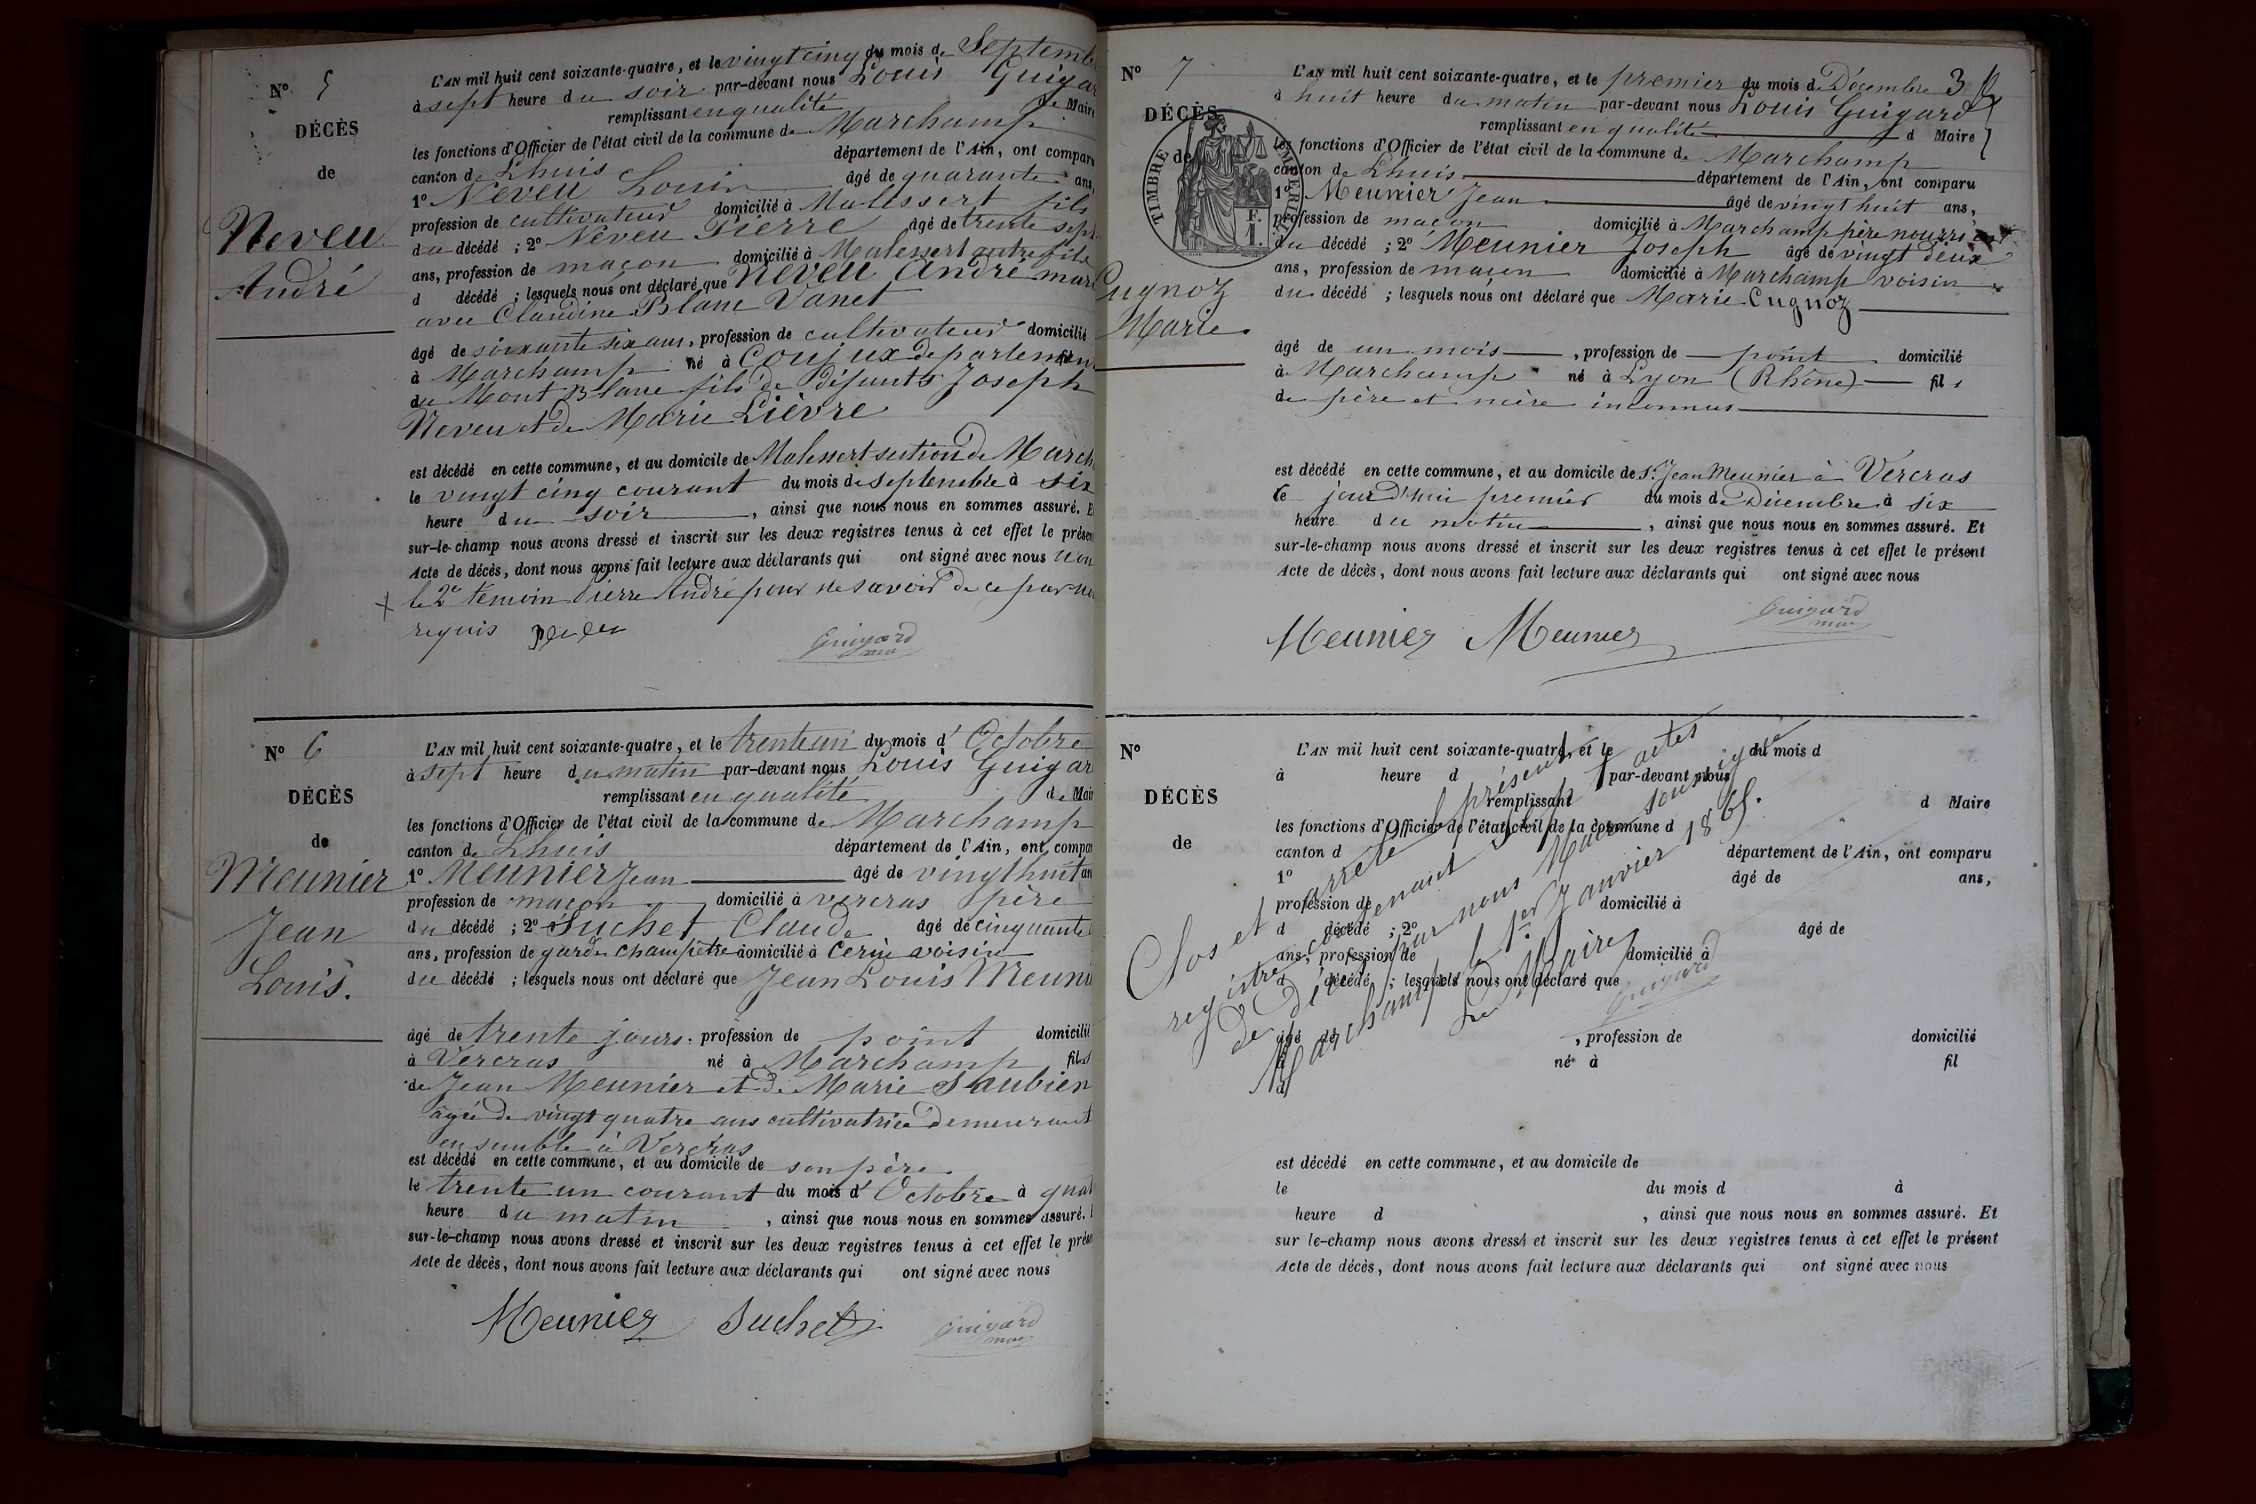 N° 5
DÉCÈS
de
Neveu
André
L'AN mil huit cent soixante-quatre, et le vingt cinq du mois de Septembre
à sept heure du soir par-devant nous Louis Guigar
remplissant en qualité de Maire
les fonctions d'Officier de l'état civil de la commune de Marchamp
canton de Lhuis département de l'Ain, ont comparu
1° Neveu Louis âgé de quarante ans,
profession de cultivateur domicilié à Malessert fils
du décédé ; 2° Neveu Pierre âgé de trente sept
ans, profession de maçon domicilié à Malessert autre fils
d décédé ; lesquels nous ont déclaré que Neveu André mari
avec Claudine Blanc Vanet
âgé de soixante six ans, profession de cultivateur domicilié
à Marchamp né à Conjux departemen
du Mont Blanc fils de Défunts Joseph
Neveu et de Marie Lièvre
est décédé en cette commune, et au domicile de Malessert section de March
le vingt cinq courant du mois de septembre à six
heure du soir, ainsi que nous nous en sommes assuré. E
sur-le-champ nous avons dressé et inscrit sur les deux registres tenus à cet effet le présen
Acte de décès, dont nous avons fait lecture aux déclarants qui ont signé avec nous non
le 2e temoin Pierre André pour ne savoir de ce par nou
requis
Guigard
maire
N° 6
DÉCÈS
de
Meunier
Jean
Louis.
L'AN mil huit cent soixante-quatre, et le trente un du mois d'Octobre
à sept heure du matin par-devant nous Louis Guigar
remplissant en qualité de Mair
les fonctions d'Officier de l'état civil de la commune de Marchamp
canton de Lhuis département de l'Ain, ont compar
1° Meunier Jean âgé de vingt huit an
profession de maçon domicilié à vercras père
du décédé ; 2° Suchet Claude âgé de cinquante
ans, profession de garde champêtre domicilié à Cerin voisin
du décédé ; lesquels nous ont déclaré que Jean Louis Meuni
âgé de trente jours, profession de point domicilié
à Vercras né à Marchamp fils
de Jean Meunier et de Marie Saubien
âgée de vingt quatre ans cultivatrice demeurant
ensemble à Vercras
est décédé en cette commune, et au domicile de son père
le trente un courant du mois d'Octobre à quat
heure du matin, ainsi que nous nous en sommes assuré.
sur-le-champ nous avons dressé et inscrit sur les deux registres tenus à cet effet le prése
Acte de décès, dont nous avons fait lecture aux déclarants qui ont signé avec nous
Meunier Suchet Guigard
maire
N° 7
DÉCÈS
de
TIMBRE IMPERIAL
F.
1.
Cugnoz
Marie
3
L'AN mil huit cent soixante-quatre, et le premier du mois de Décembre
à huit heure du matin par-devant nous Louis Guigard
remplissant en qualité d Maire
les fonctions d'Officier de l'état civil de la commune de Marchamp
canton de Lhuis département de l'Ain, ont comparu
1° Meunier Jean âgé de vingt huit ans,
profession de maçon domicilié à Marchamp père nourri
du décédé ; 2° Meunier Joseph âgé de vingt deux
ans, profession de maçon domicilié à Marchamp voisin
du décédé ; lesquels nous ont déclaré que Marie Cugnoz
âgé de un mois, profession de point domicilié
à Marchamp né à Lyon (Rhône) fil
de père et mère inconnus
est décédé en cette commune, et au domicile de s. Jean Meunier à Vercras
le jour d'hui premier du mois de Décembre à six
heure du matin, ainsi que nous nous en sommes assuré. Et
sur-le-champ nous avons dressé et inscrit sur les deux registres tenus à cet effet le présent
Acte de décès, dont nous avons fait lecture aux déclarants qui ont signé avec nous
Guigard
maire
Meunier Meunier
N°
DÉCÈS
de
L'AN mil huit cent soixante-quatre, et le du mois d
à heure d par-devant nous
remplissant d Maire
les fonctions d'Officier de l'état civil de la commune d
canton d département de l'Ain, ont comparu
1° âgé de ans,
profession de domicilié à
d décédé ; 2° âgé de
ans, profession de domicilié à
d décédé ; lesquels nous ont déclaré que
âgé de , profession de domicilié
à né à fil
d
est décédé en cette commune, et au domicile de
le du mois d à
heure d , ainsi que nous nous en sommes assuré. Et
sur le-champ nous avons dressé et inscrit sur les deux registres tenus à cet effet le présent
Acte de décès, dont nous avons fait lecture aux déclarants qui ont signé avec nous
Clos et arrêté le présent
registre contenant sept actes
de Décès par nous Maire soussigné
Marchamp le 1er Janvier 1865.
Le Maire
Guigard